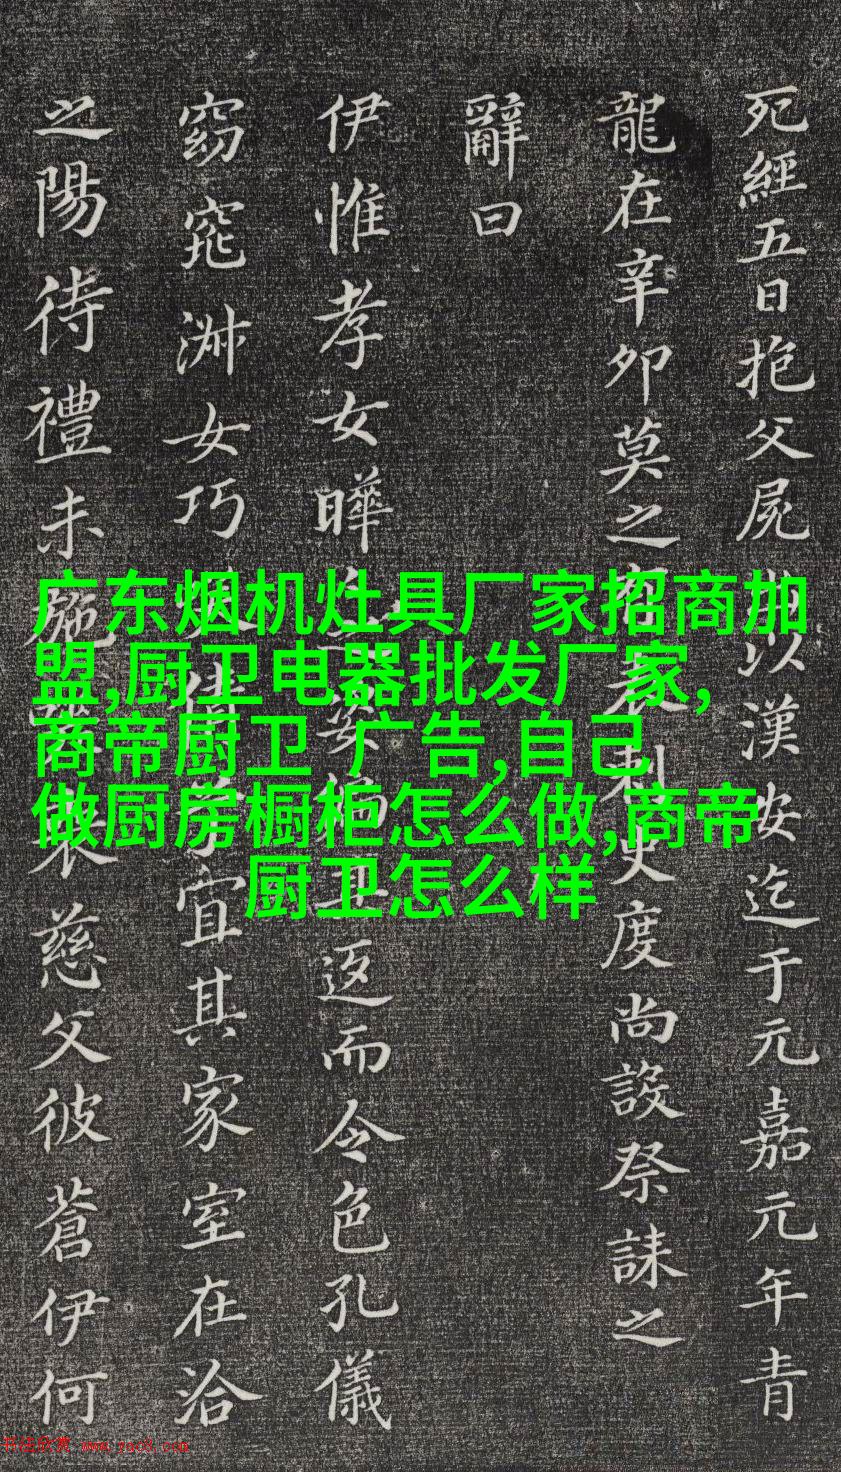 死經五日抱父屍以漢安迄于元嘉元年青
龍在辛卯莫之表史度尚設祭誄之
辭曰
伊惟孝女曄姿偏其返而令色孔儀
窈窕淑女巧倩宜其家室在洽
之陽待禮未施慈父彼蒼伊何
广东烟机灶具厂家招商加
盟,厨卫电器批发厂家,
商帝厨卫 广告,自己
做厨房橱柜怎么做,商帝
厨卫怎么样
书法欣赏 www.yac8.com